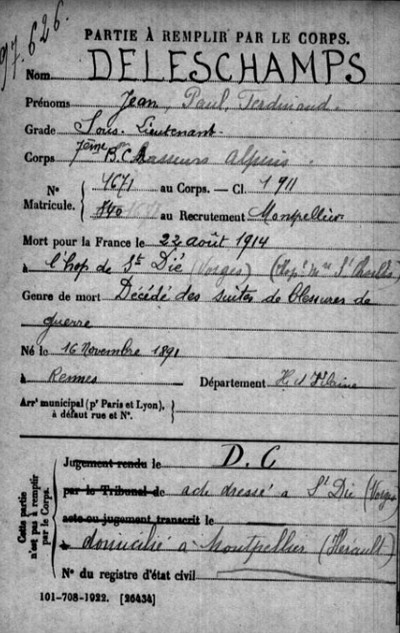 97.626.
PARTIE À REMPLIR PAR LE CORPS.
Nom DELESCHAMPS
Prénoms Jean, Paul, Ferdinand.
Grade Sous-Lieutenant.
Corps 7ème B.Chasseurs Alpins.
Nº Matricule. { 4671 au Corps. — Cl. 1911
540 au Recrutement Montpellier
Mort pour la France le 22 août 1914
à l'hop de St Dié (Vosges) (Hop. St Charles)
Genre de mort Décédé des suites de blessures de
guerre
Né le 16 Novembre 1891
à Rennes Département
Arrt municipal (pr Paris et Lyon), à défaut rue et Nº. }
Cette partie n'est pas à remplir par le Corps.
Jugement rendu le D.C
par le Tribunal de acte dressé à St Dié (Vosges)
acte ou jugement transcrit le
à domicilié à Montpellier (Hérault)
Nº du registre d'état civil
101-708-1922. [26434]